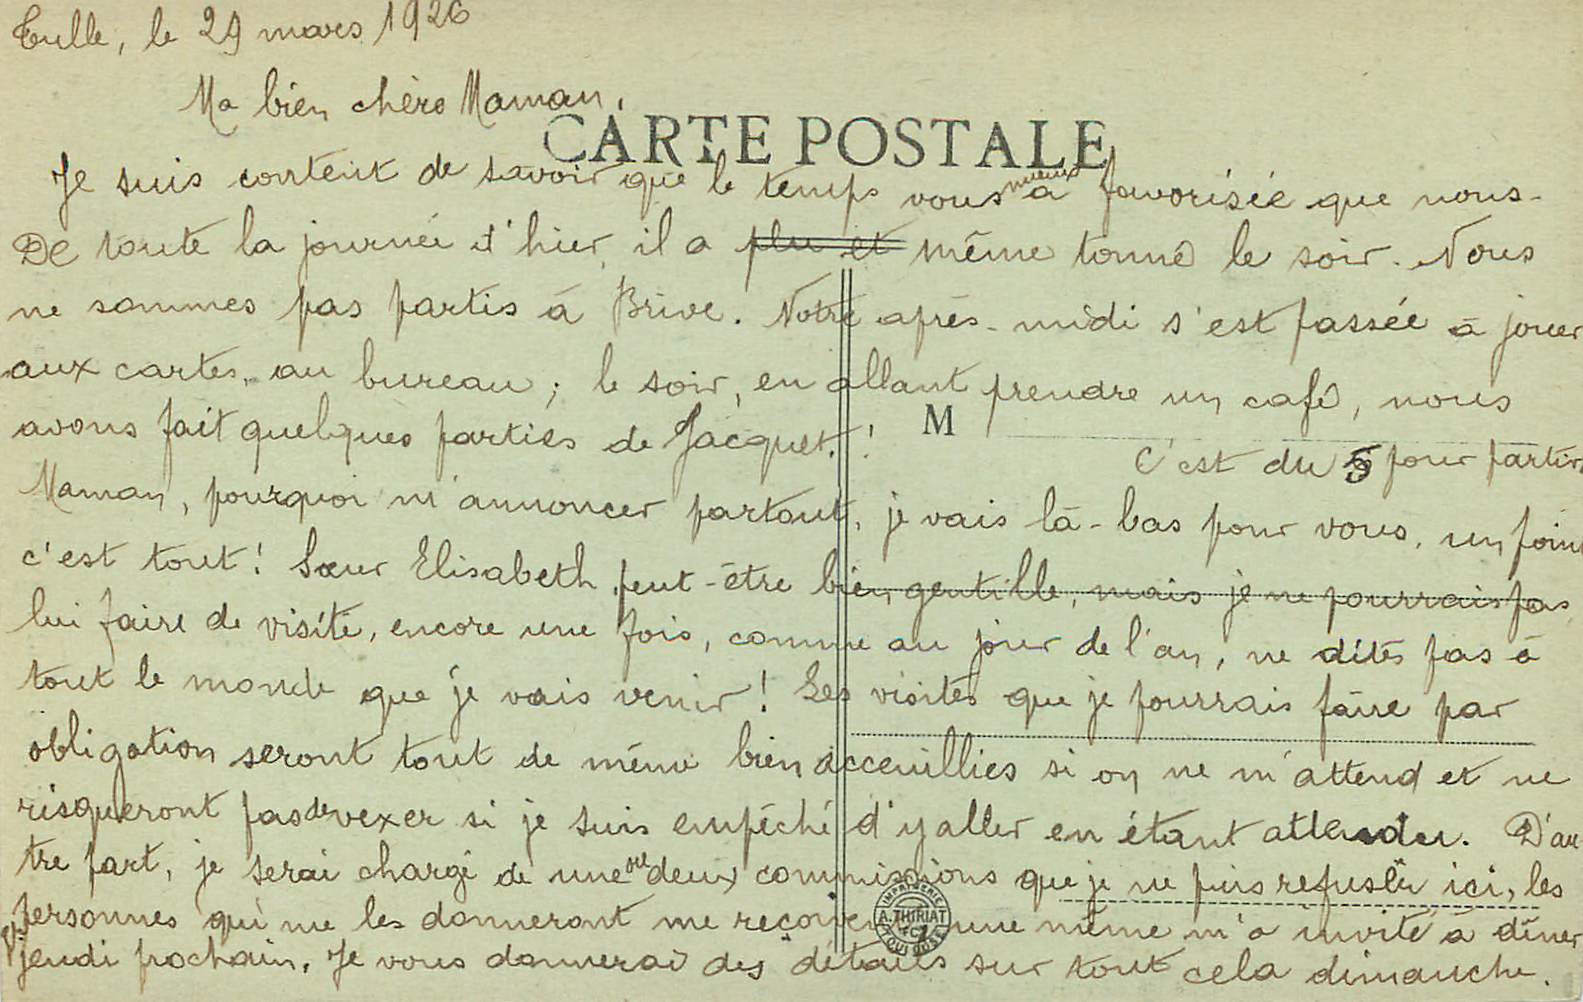 Tulle, le 29 mars 1926
Ma bien chère Maman,
CARTE POSTALE
Je suis content de savoir que le temps vous a mieux favorisée que nous.
De toute la journée d'hier, il a plu et même tonné le soir. Nous
ne sommes pas partis à Brive. Notre après-midi s'est passée à jouer
aux cartes, au bureau ; le soir, en allant prendre un café, nous
avons fait quelques parties de Jacquet. !
M
C'est du 5 pour partir
Maman, pourquoi m'annoncer partout, je vais là-bas pour vous, un point
c'est tout ! Sœur Elisabeth peut-être bien gentille, mais je ne pourrais pas
lui faire de visite, encore une fois, comme au jour de l'an, ne dites pas à
tout le monde que je vais venir ! Les visites que je pourrais faire par
obligation seront tout de même bien acceuillies si on ne m'attend et ne
risqueront pas de vexer si je suis empêché d'y aller en étant attendu. D'au
tre part, je serai chargé de une ou deux commissions que je ne puis refuser ici, les
personnes qui me les donneront me reçoivent une même m'a invité à dîner
jeudi prochain. Je vous donnerai des détails sur tout cela dimanche.
IMPRIMERIE
A. THIRIAT
& Cie
TOULOUSE